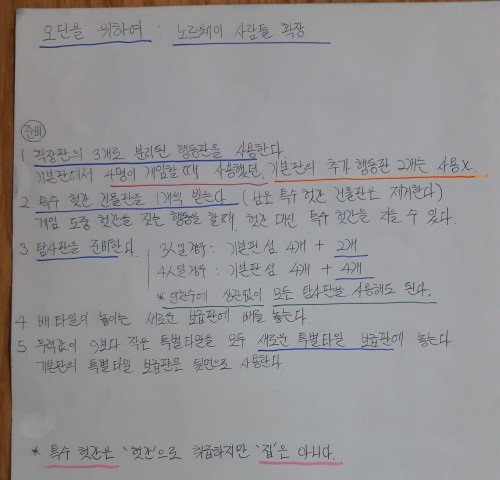 오딘을 위하여 : 노르웨이 사람들 확장
준비
1 확장판의 3개로 분리된 행동판을 사용한다.
기본판에서 4명이 게임할 때 사용했던, 기본판의 추가 행동판 2개는 사용X.
2 특수 헛간 건물판을 1개씩 받는다. (남은 특수 헛간 건물판은 제거한다)
게임 도중 헛간을 짓는 행동을 할 때, 헛간 대신 특수 헛간을 지을 수 있다.
3 탐사판을 준비한다. 3人일 경우 : 기본판 섬 4개 + 2개
4人일 경우 : 기본판 섬 4개 + 4개
* 인원수에 상관없이 모든 탐사판을 사용해도 된다.
4 배 타일의 놓이는 새로운 보급판에 배를 놓는다.
5 무력값이 9보다 작은 특별타일을 모두 새로운 특별타일 보급판에 놓는다.
기본판의 특별타일 보급판은 뒷면으로 사용한다.
* 특수 헛간은 '헛간'으로 취급하지만 '집'은 아니다.